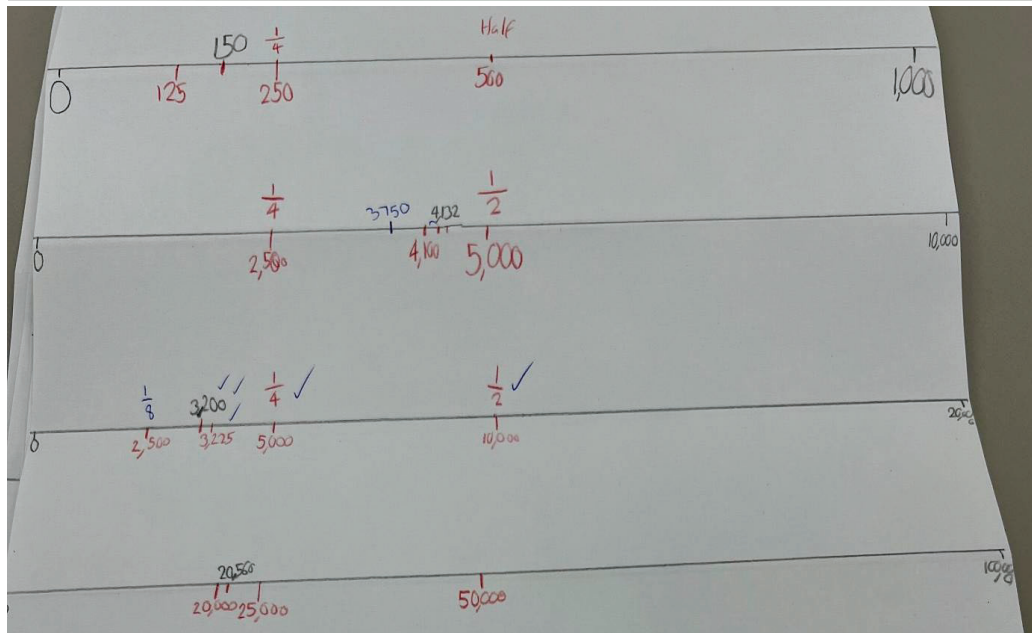 150 1/4 Half
0 125 250 500 1,000
1/4 3750 4,132 1/2
0 2,500 4,100 5,000 10,000
1/8 3,200 ✓✓ 1/4 ✓ 1/2 ✓
0 2,500 3,225 ✓ 5,000 10,000 20,000
20,500
20,000 25,000 50,000 100,000